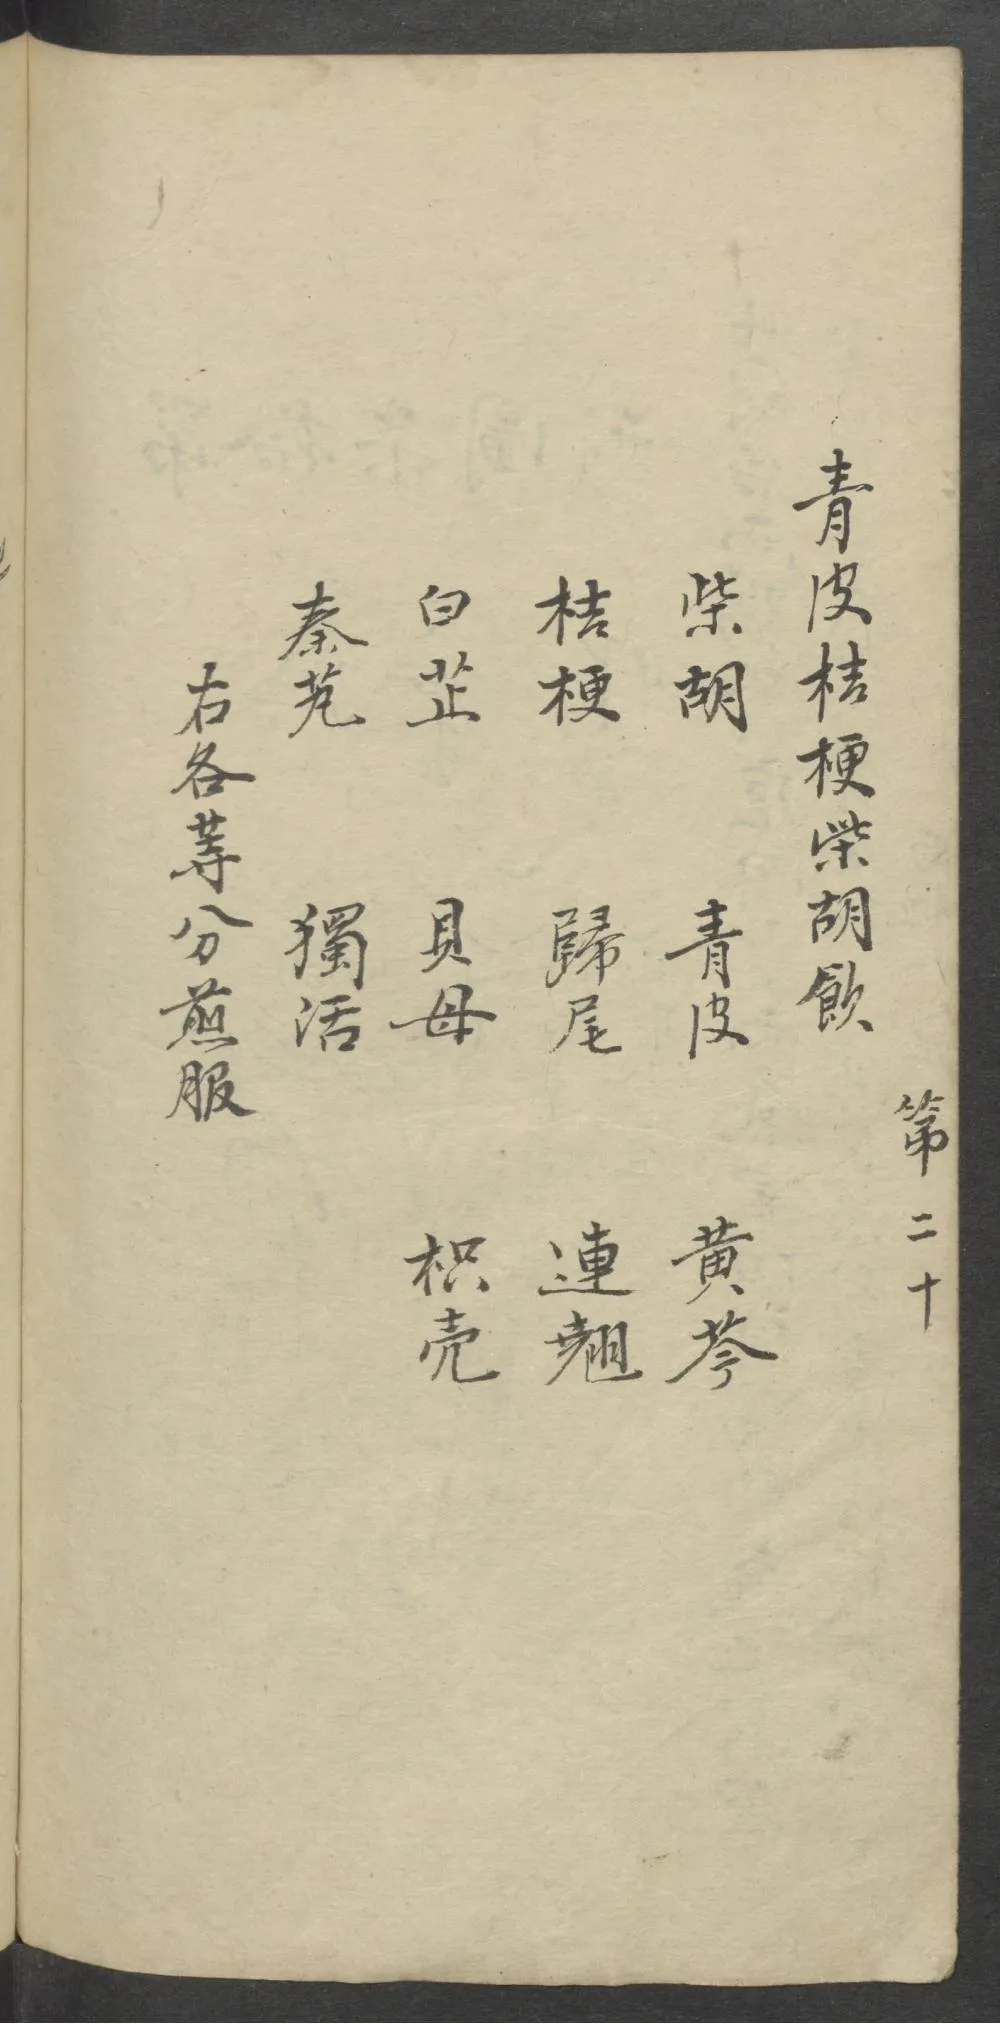 第二十
青皮桔梗柴胡飲
柴胡 青皮 黄芩
桔梗 歸尾 連翹
白芷 貝母 枳壳
秦芃 獨活
右各等分煎服